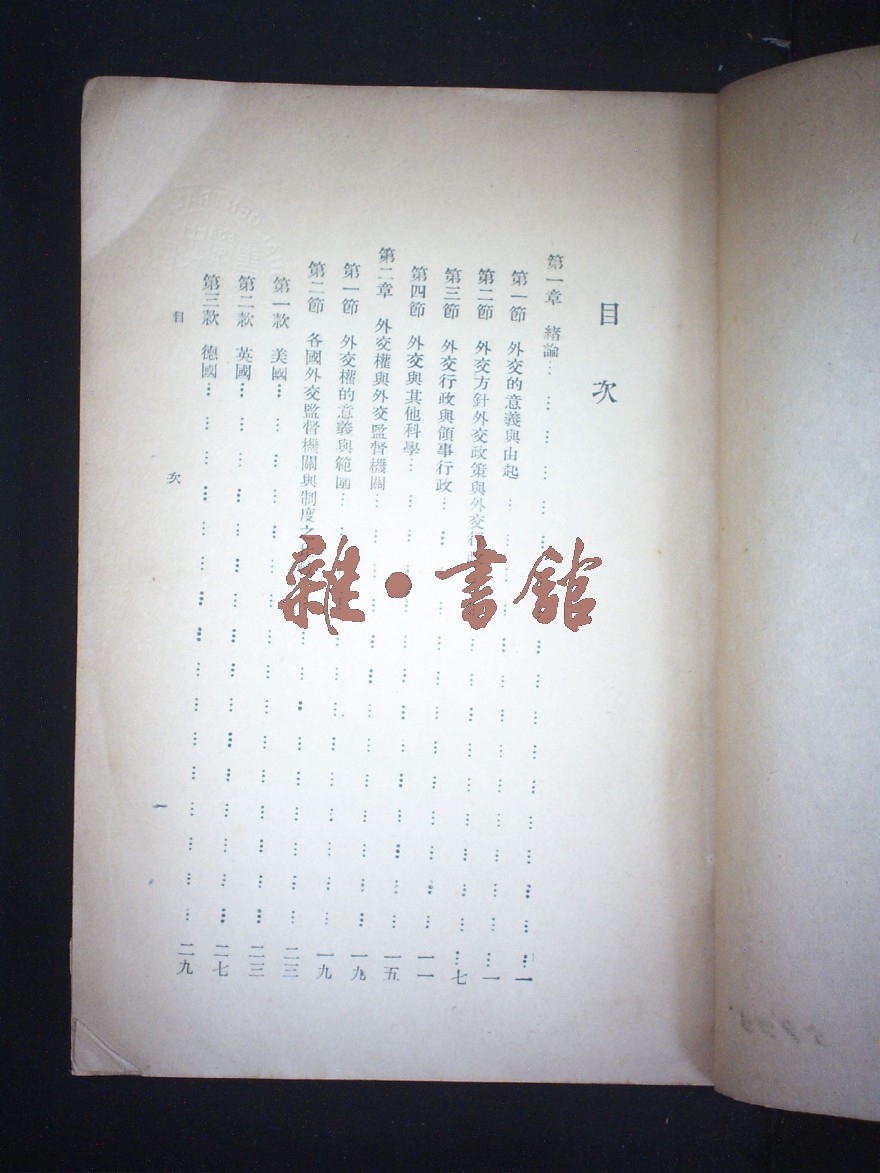 目次
第一章 緒論… … … … … … … … … 一
第一節 外交的意義與由起 … … … … … … … … 一
第二節 外交方針外交政策與外交行 … … … … … … 七
第三節 外交行政與領事行政… … … … … … … … 一一
第四節 外交與其他科學… … … … … … … … 一五
第二章 外交權與外交監督機關… … … … … … … … 一九
第一節 外交權的意義與範圍… … … … … … … … 一九
第二節 各國外交監督機關與制度之 … … … … … … 二三
第一款 美國… … … … … … … … … … 二三
第二款 英國… … … … … … … … … … 二七
第三款 德國… … … … … … … … … … 二九
目 次 一
雜·書館